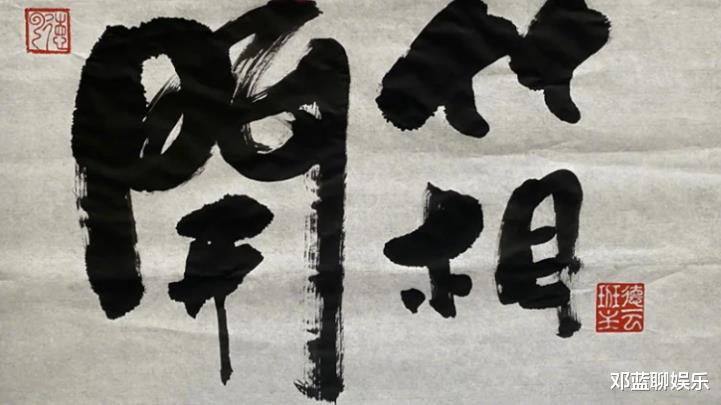 開箱
德云班主
邓蓝聊娱乐